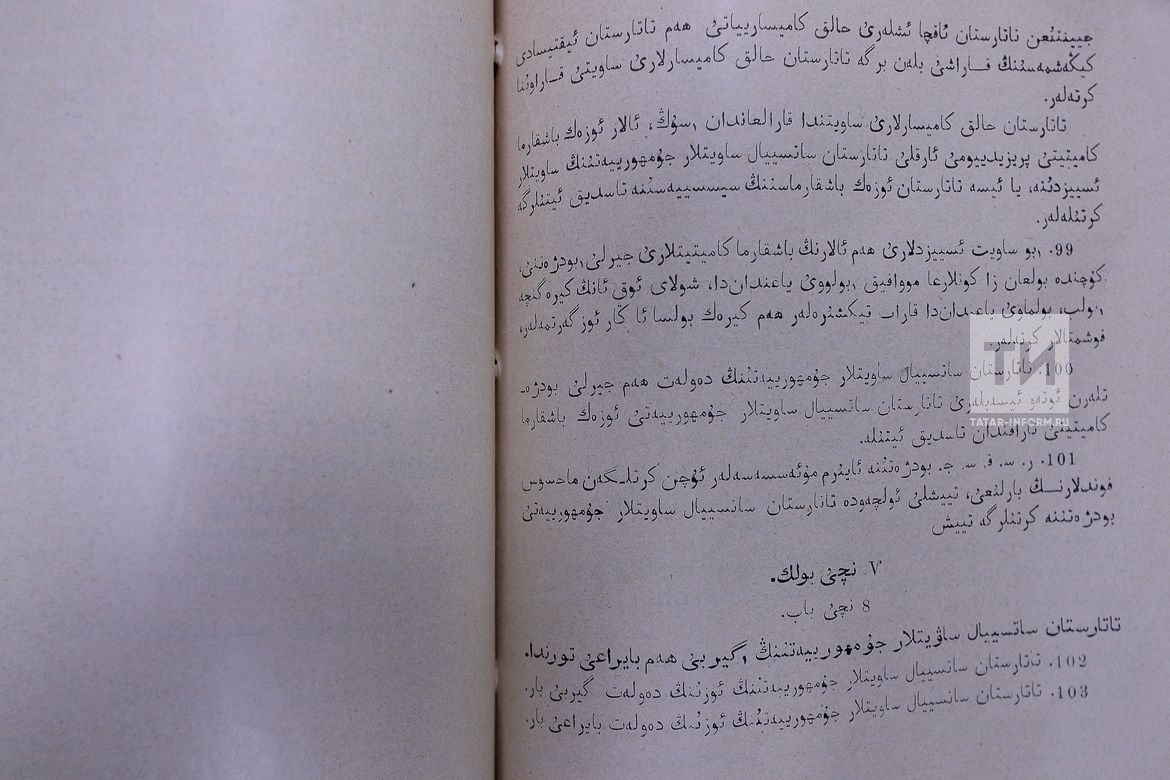 جییفتنعن تاتارستان ئاقچا ئشلەرئ حالق كامیسارییاتئ هەم تاتارستان ئیقتیسادی
كیڭەشمەسىنڭ قاراشئ بلەن برگە تاتارستان حالق كامیسارلارئ ساویتئ قاراوئنا
كرتەلەر.
تاتارستان حالق كامیسارلارئ ساویتندا قارالعاندان سوڭ، ئالار ئوزەك باشقارما
كامیتیتئ پریزیدییومئ ئارقلئ تاتارستان ساتسییال ساویتلار جۇمهورییەتىنڭ ساویتلار
ئسییزدئنە، یا ئیسە تاتارستان ئوزەك باشقارماسىنڭ سیسسییەسنە تاسدیق ئیتىلرگە
كرتلەلەر.
99. بو ساویت ئسییزدلارئ هەم ئالارنڭ باشقارما كامیتیتلارئ جیرلئ بودژەتنئ،
كۇچندە بولعان زا كونلارعا مووافیق بولووئ یاعندان‌دا، شولای ئوق ئانڭ كیرەگنچە
بولب، بولماوئ یاعندان‌دا قاراب تیكشرەلەر هەم كیرەك بولسا ئا ڭار ئوزگەرتمەلەر،
قوشمتالار كرتەلەر.
100. تاتارستان ساتسییال ساویتلار جۇمهورییەتىنڭ دەولەت هەم جیرلئ بودژە-
تلەرن ئوتەو ئیسەبلەرئ تاتارستان ساتسییال ساویتلار جۇمهورییەتئ ئوزەك باشقارما
كامیتیتئ تارافندان تاسدیق ئیتلە.
101. ر. س. ف. س. ج. بودژەتنە ئایئرم مۇئەسسەسەلەر ئۇچن كرتلگەن ماحسوس
فوندلارنڭ بارلعئ، تییشلئ ئولچەودە تاتارستان ساتسییال ساویتلار جۇمهورییەتئ
بودژەتنە كرتلرگە تییش
V. نچئ بولك.
8 نچئ باب.
تاتارستان ساتسییال ساۋیتلار جۇمهورییەتىنڭ گیربئ هەم بایراعئ تورندا.
102. تاتارستان ساتسییال ساویتلار جۇمهورییەتىنڭ ئوزىنڭ دەولەت گیربئ بار.
103. تاتارستان ساتسییال ساویتلار جۇمهورییەتىنڭ ئوزىنڭ دەولەت بایراعئ بار.
ТИ
TATAR-INFORM.RU